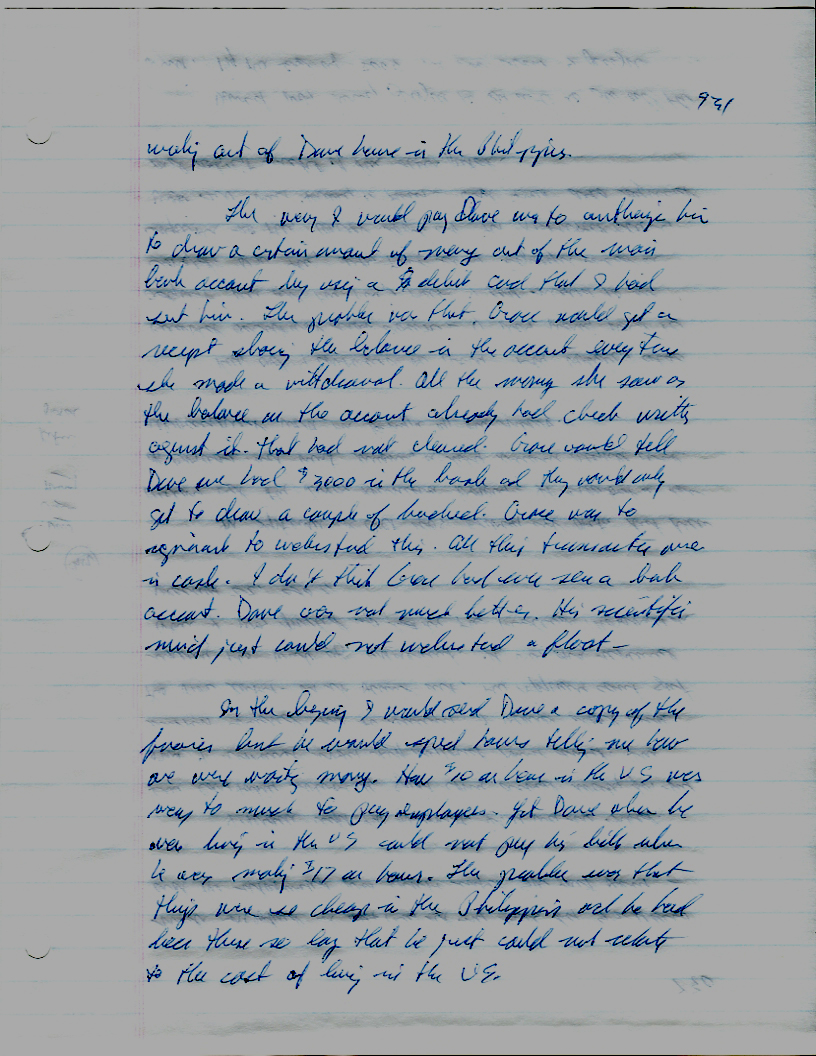 931
making out of Dave house in the Philippies.
The way I would pay Dave was to authorize him
to draw a certain amount of money out of the main
bank account by using a debit card that I had
sent him. The problem was that, Grace would get a
receipt showing the balance in the account every time
she made a withdrawal. All the money she saw as
the balance in the account already had check written
against it. that had not cleared. Grace would tell
Dave we had $3000 in the bank and they would only
get to draw a couple of hundred. Grace was to
ignorant to understand this. All their transaction were
in cash. I don't think Grace had ever seen a bank
account. Dave was not much better. His scientific
mind just could not understand a float -
In the beginning I would send Dave a copy of the
but he would spend hours telling me how
we were wasting money. How $10 an hour in the US was
way to much to pay employees. Yet Dave when he
was living in the US could not pay his bills when
he was making $17 an hour. The problem was that
things were so cheap in the Philippines and he had
been there so long that he just could not relate
to the cost of living in the US.